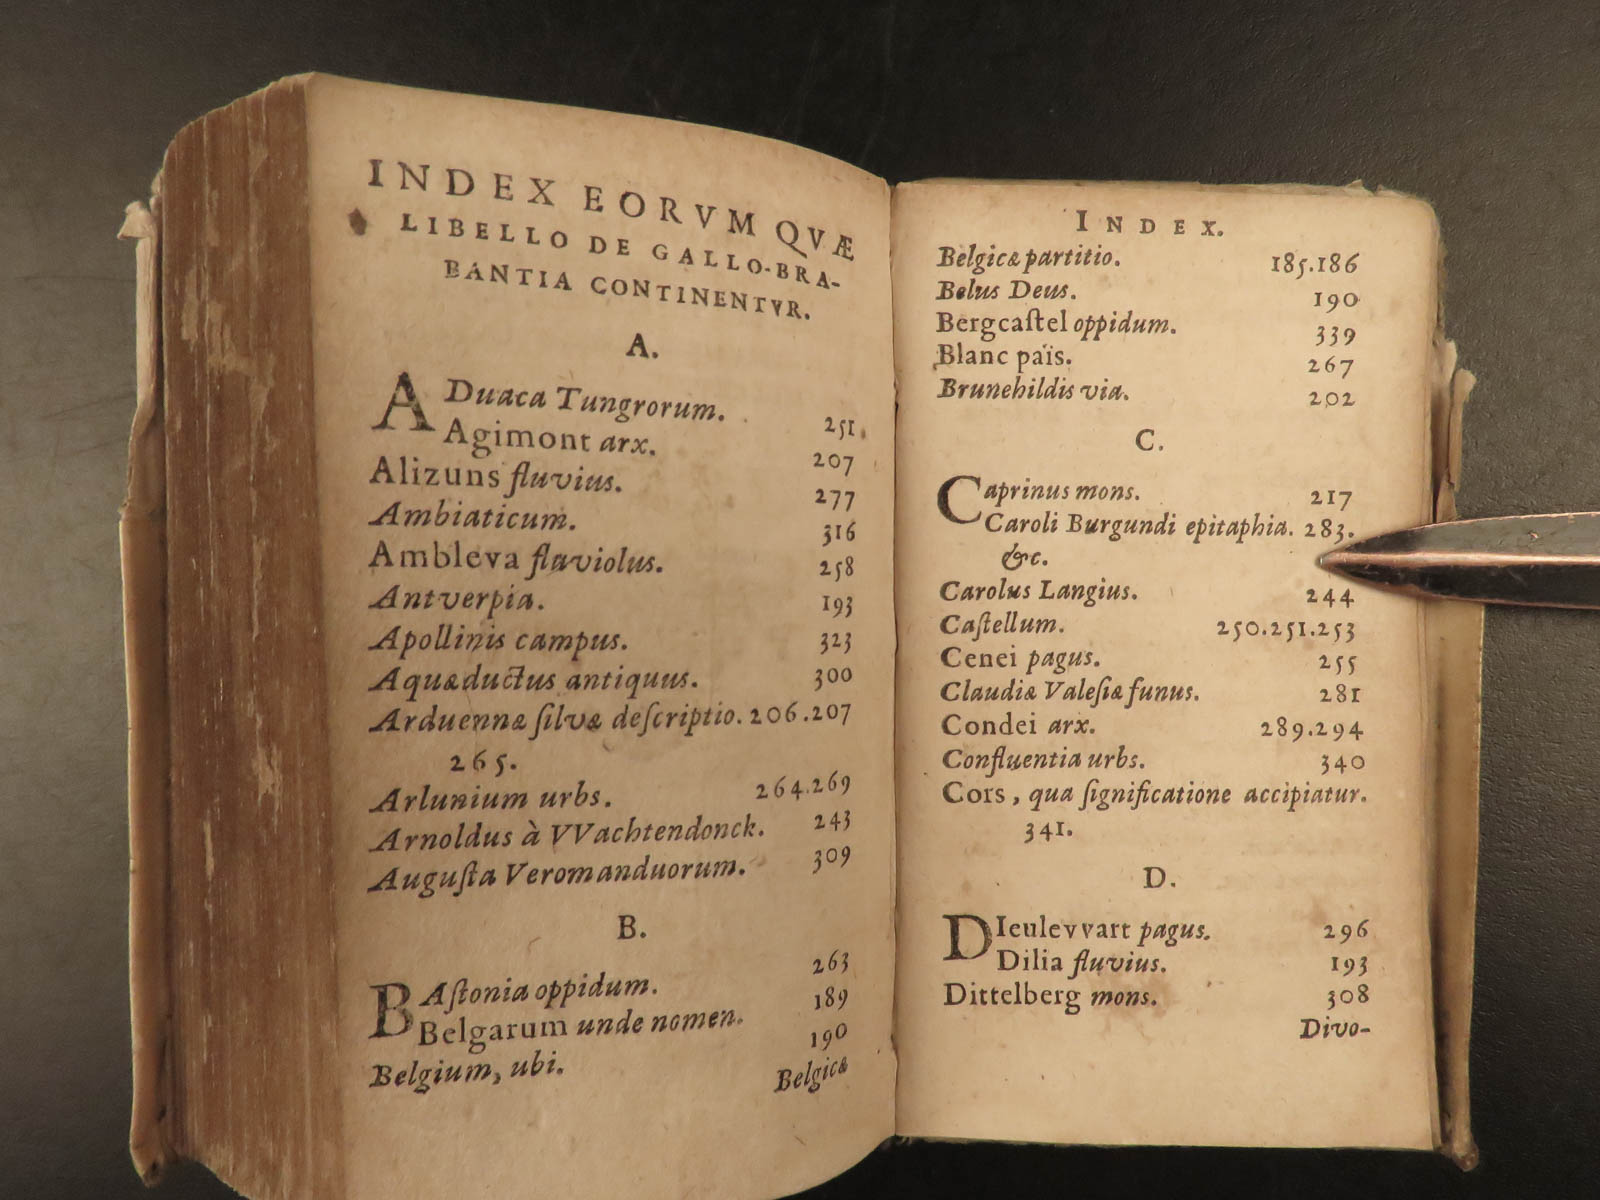 INDEX EORVM QVÆ
LIBELLO DE GALLO-BRA-
BANTIA CONTINENTVR.
A.
ADuaca Tungrorum. 251
Agimont arx. 207
Alizuns fluvius. 277
Ambiaticum. 316
Ambleva fluviolus. 258
Antverpia. 193
Apollinis campus. 323
Aquæductus antiquus. 300
Arduennæ ſilvæ deſcriptio. 206.207
265.
Arlunium urbs. 264.269
Arnoldus à VVachtendonck. 243
Auguſta Veromanduorum. 309
B.
BAſtonia oppidum. 263
Belgarum unde nomen. 189
Belgium, ubi. 190
Belgicæ
INDEX.
Belgicæ partitio. 185.186
Belus Deus. 190
Bergcaſtel oppidum. 339
Blanc païs. 267
Brunehildis via. 202
C.
Caprinus mons. 217
Caroli Burgundi epitaphia. 283.
&c.
Carolus Langius. 244
Caſtellum. 250.251.253
Cenei pagus. 255
Claudiæ Valeſiæ funus. 281
Condei arx. 289.294
Confluentia urbs. 340
Cors, qua ſignificatione accipiatur.
341.
D.
DIeulevvart pagus. 296
Dilia fluvius. 193
Dittelberg mons. 308
Divo-